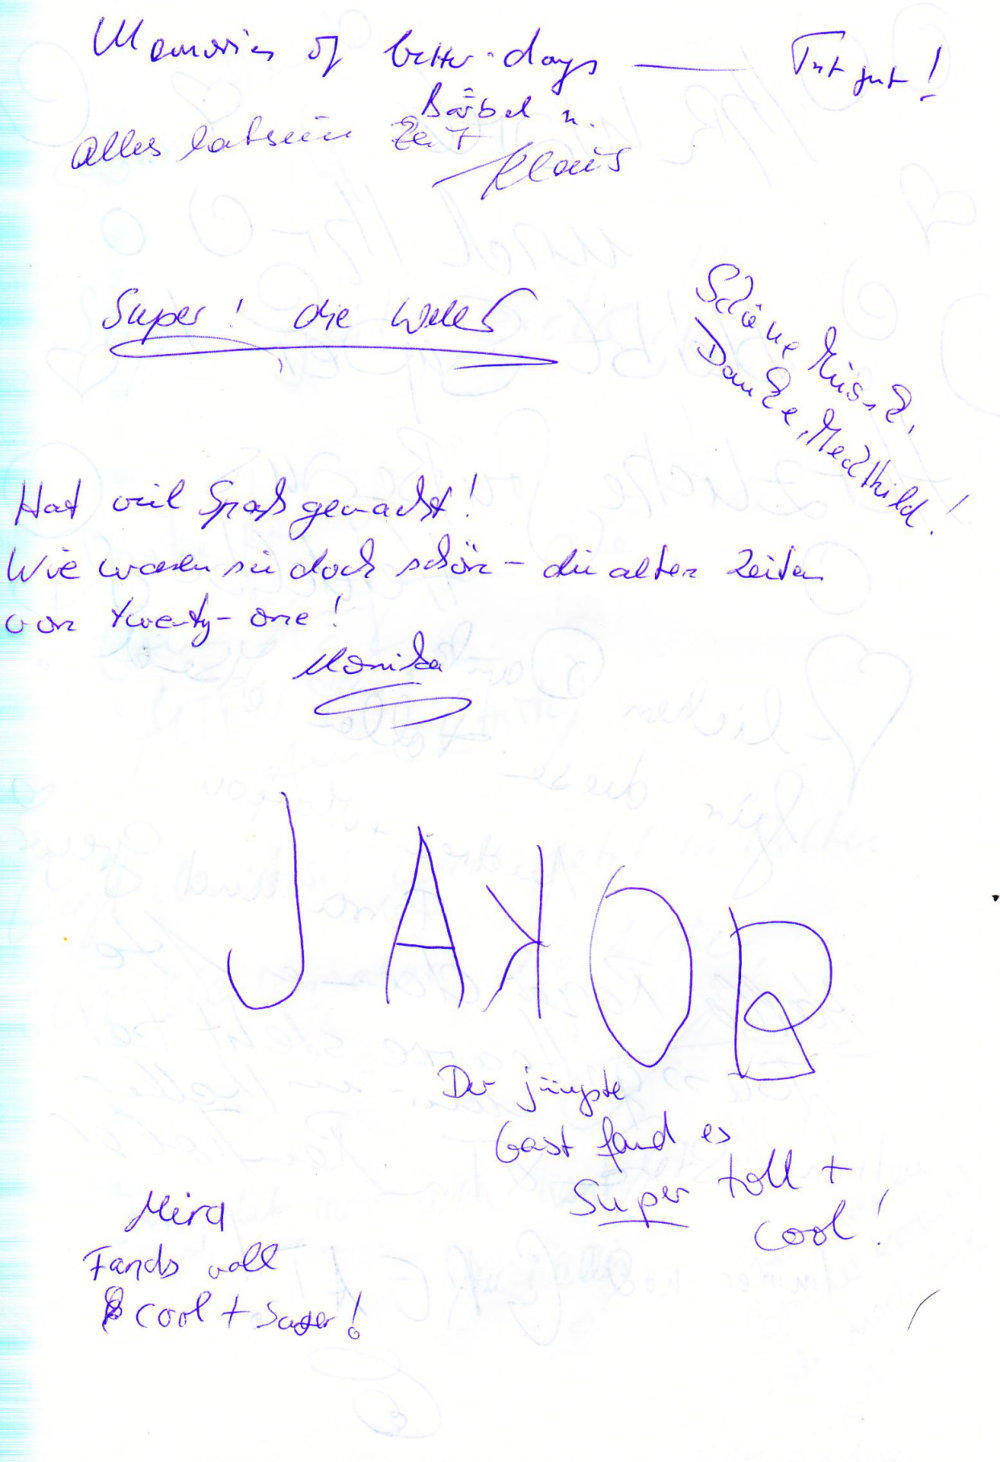 Memories of better-days — Tut gut!
Bärbel u.
Alles hat seine Zeit
Klaus
Super! die
Schöne Musik,
Danke, Mechthild!
Hat viel Spaß gemacht!
Wie waren sie doch schön - die alten Zeiten
von twenty-one!
Monika
JAKOB
Der jüngste
Gast fand es
Super toll +
cool!
Mira
Fands voll
cool + Super!